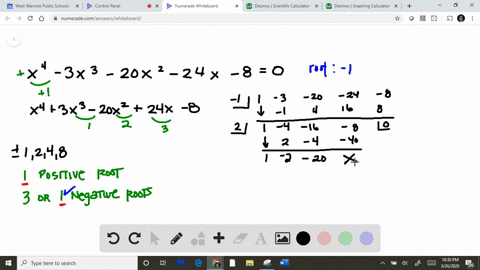 West Warwick Public Schools
Control Panel
Numerade Whiteboard
Desmos | Scientific Calculator
Desmos | Graphing Calculator
numerade.com/answers/whiteboard/
+x⁴ -3x³ -20x² -24x -8 = 0
root: -1
+1
x⁴ +3x³ -20x² +24x -8
1 2 3
-1 | 1 -3 -20 -24 -8
↓ -1 4 16 8
2 | 1 -4 -16 -8 |0
↓ 2 -4 -40
1 -2 -20
±1,2,4,8
1 Positive Root
3 or 1 Negative Roots
Type here to search
10:30 PM
3/26/2020